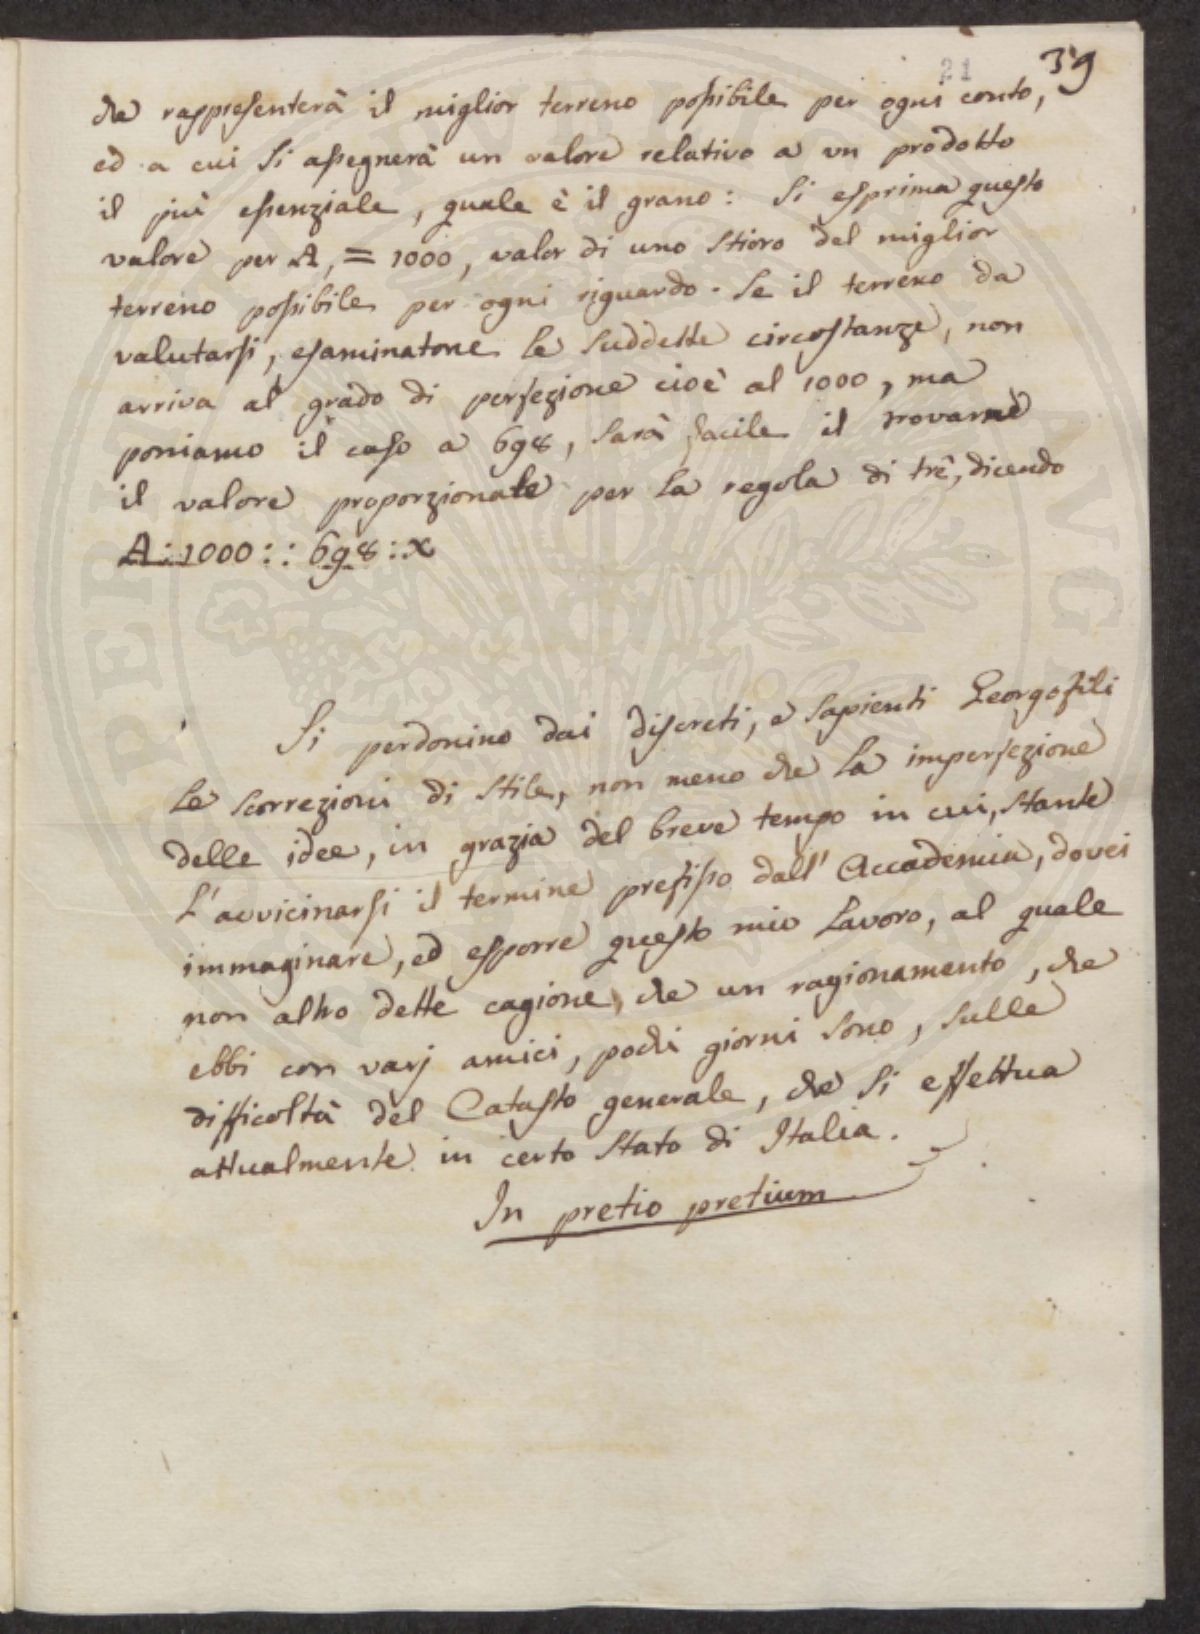 21 39
che rappresenterà il miglior terreno possibile per ogni conto,
ed a cui si assegnerà un valore relativo a un prodotto
il più essenziale, quale è il grano: Si esprima questo
valore per A, = 1000, valor di uno stioro del miglior
terreno possibile per ogni riguardo. Se il terreno da
valutarsi, esaminatone le suddette circostanze, non
arriva al grado di perfezione cioè al 1000, ma
poniamo il caso a 698, sarà facile il trovarne
il valore proporzionate per la regola di trè, dicendo
A : 1000 : : 698 : x
Si perdonino dai discreti, e sapienti Georgofili
le scorrezioni di stile, non meno che la imperfezione
delle idee, in grazia del breve tempo in cui, stante
l'avvicinarsi il termine prefisso dall' Accademia, dovei
immaginare, ed esporre questo mio lavoro, al quale
non altro dette cagione, che un ragionamento, che
ebbi con varj amici, pochi giorni sono, sulle
difficoltà del Catasto generale, che si effettua
attualmente in certo stato di Italia.
In pretio pretium